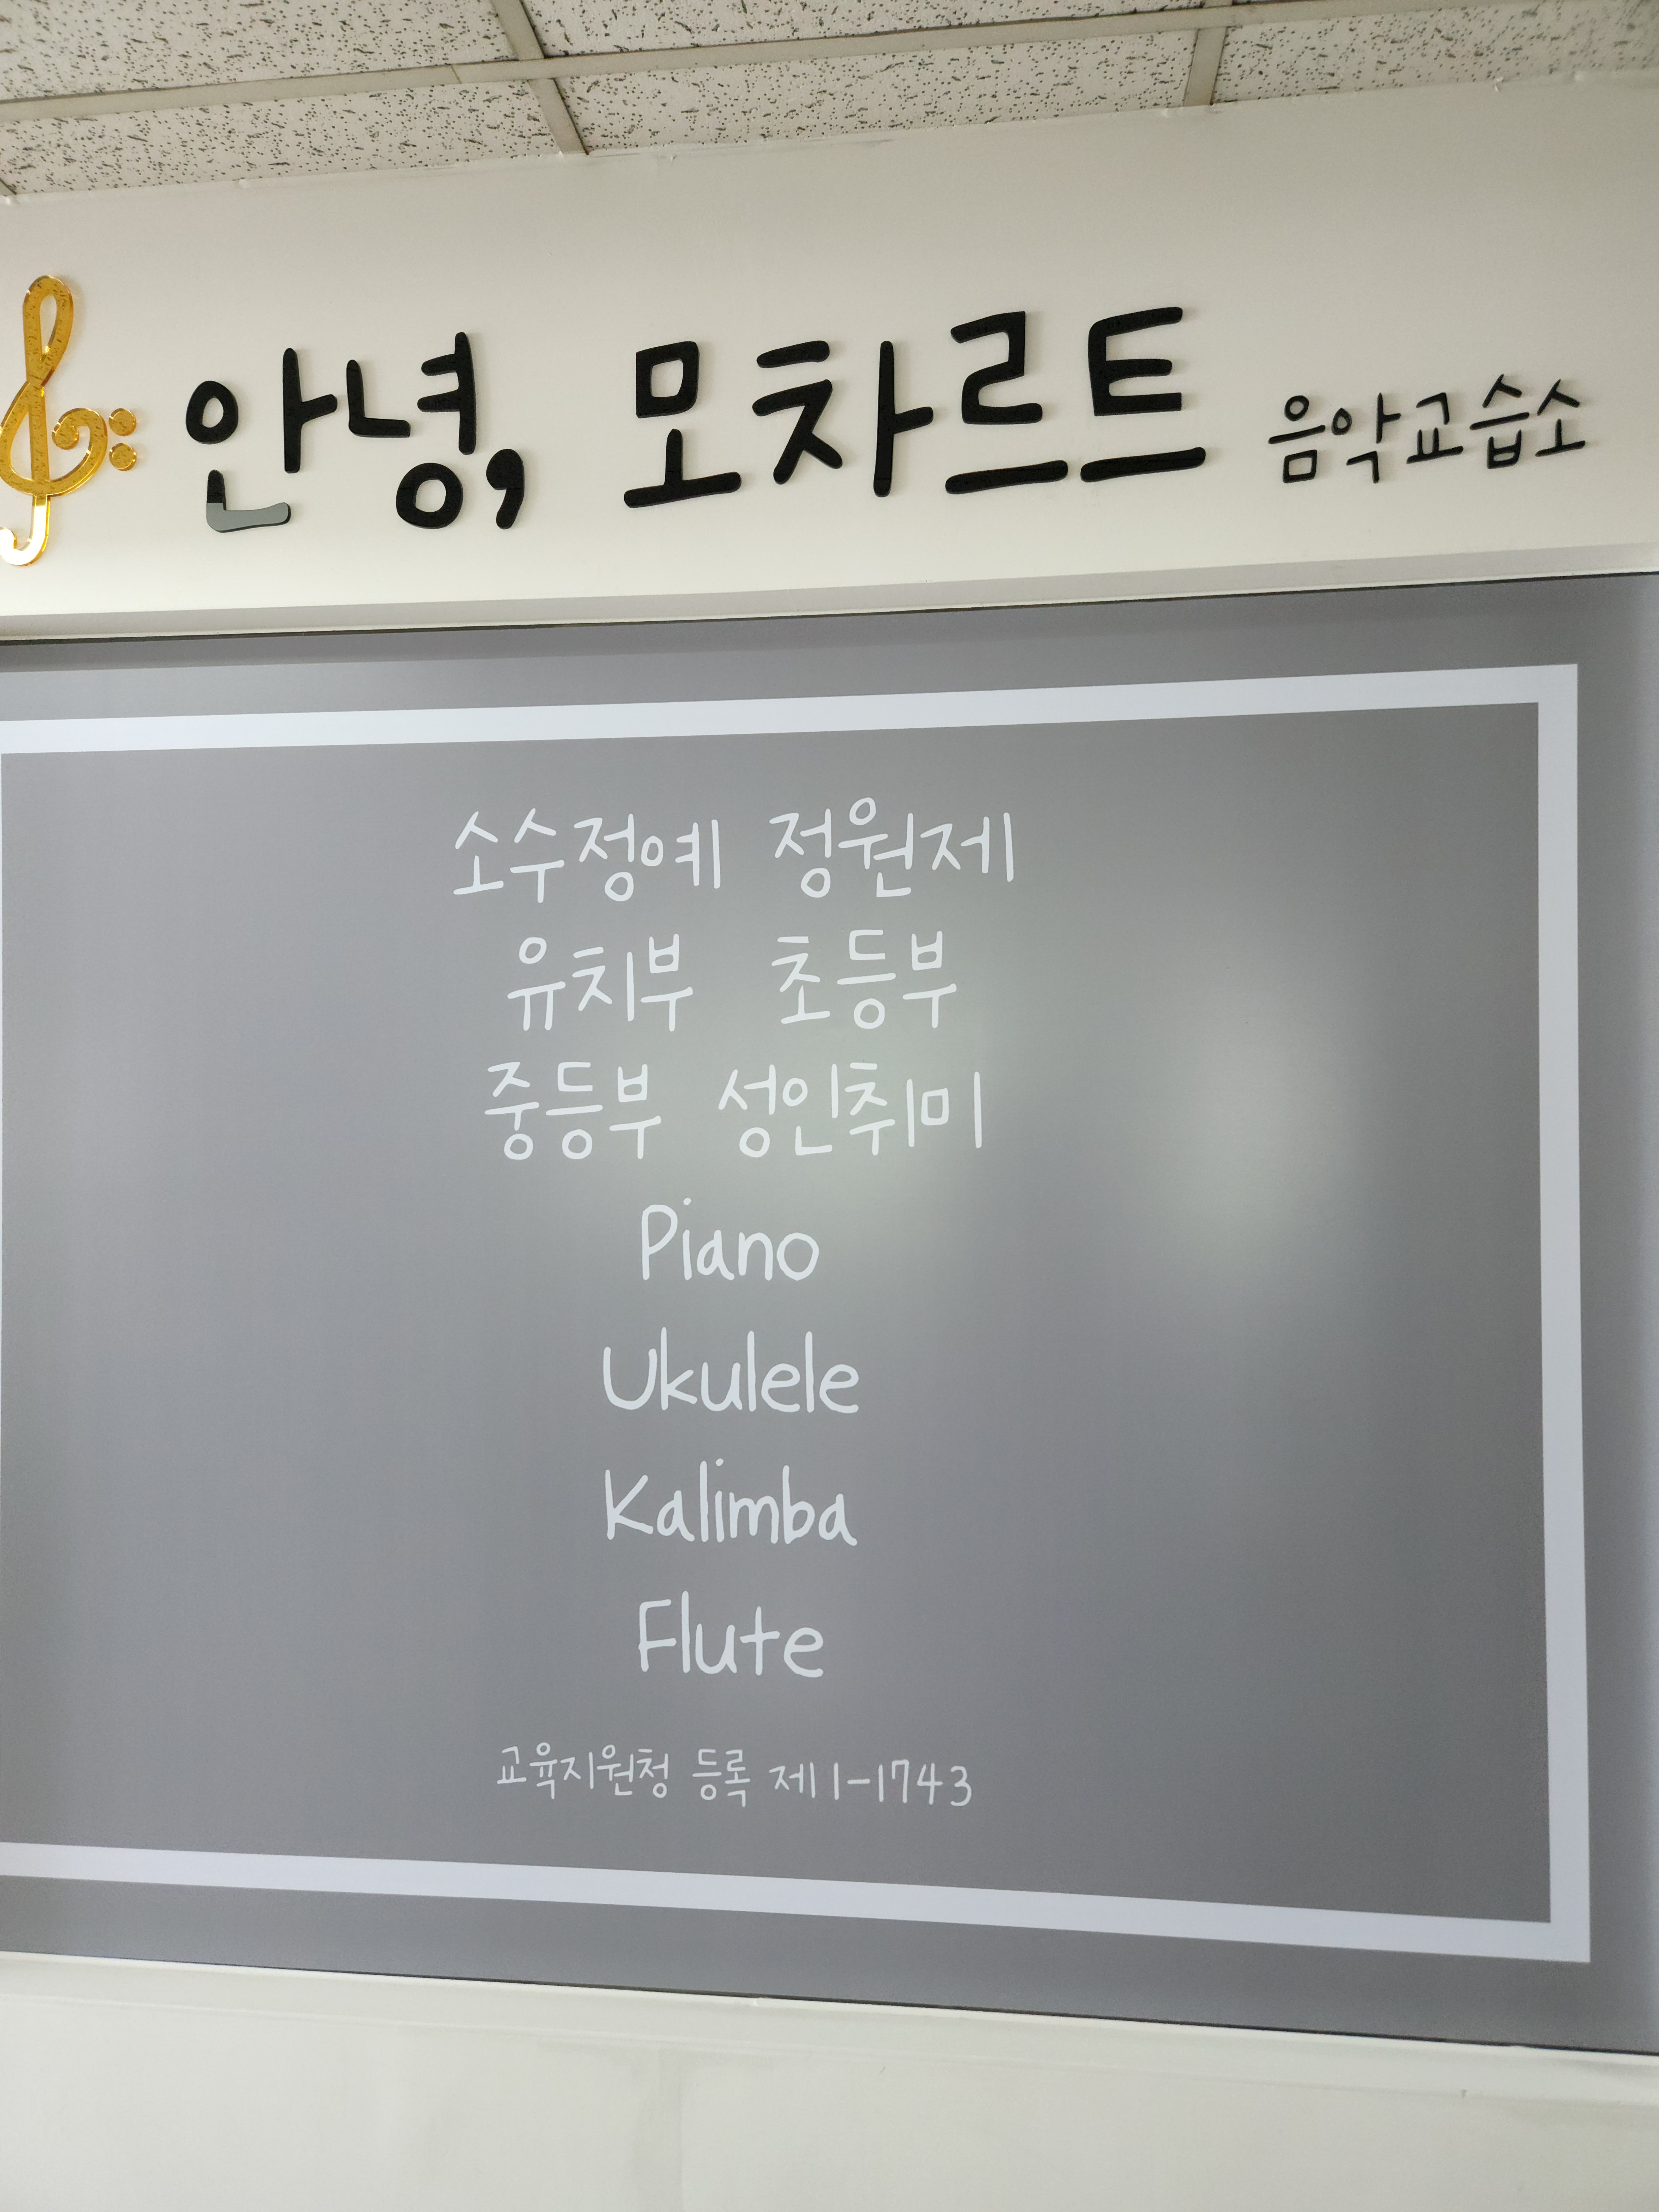 안녕, 모차르트 음악교습소
소수정예 정원제
유치부 초등부
중등부 성인취미
Piano
Ukulele
Kalimba
Flute
교육지원청 등록 제1-1743